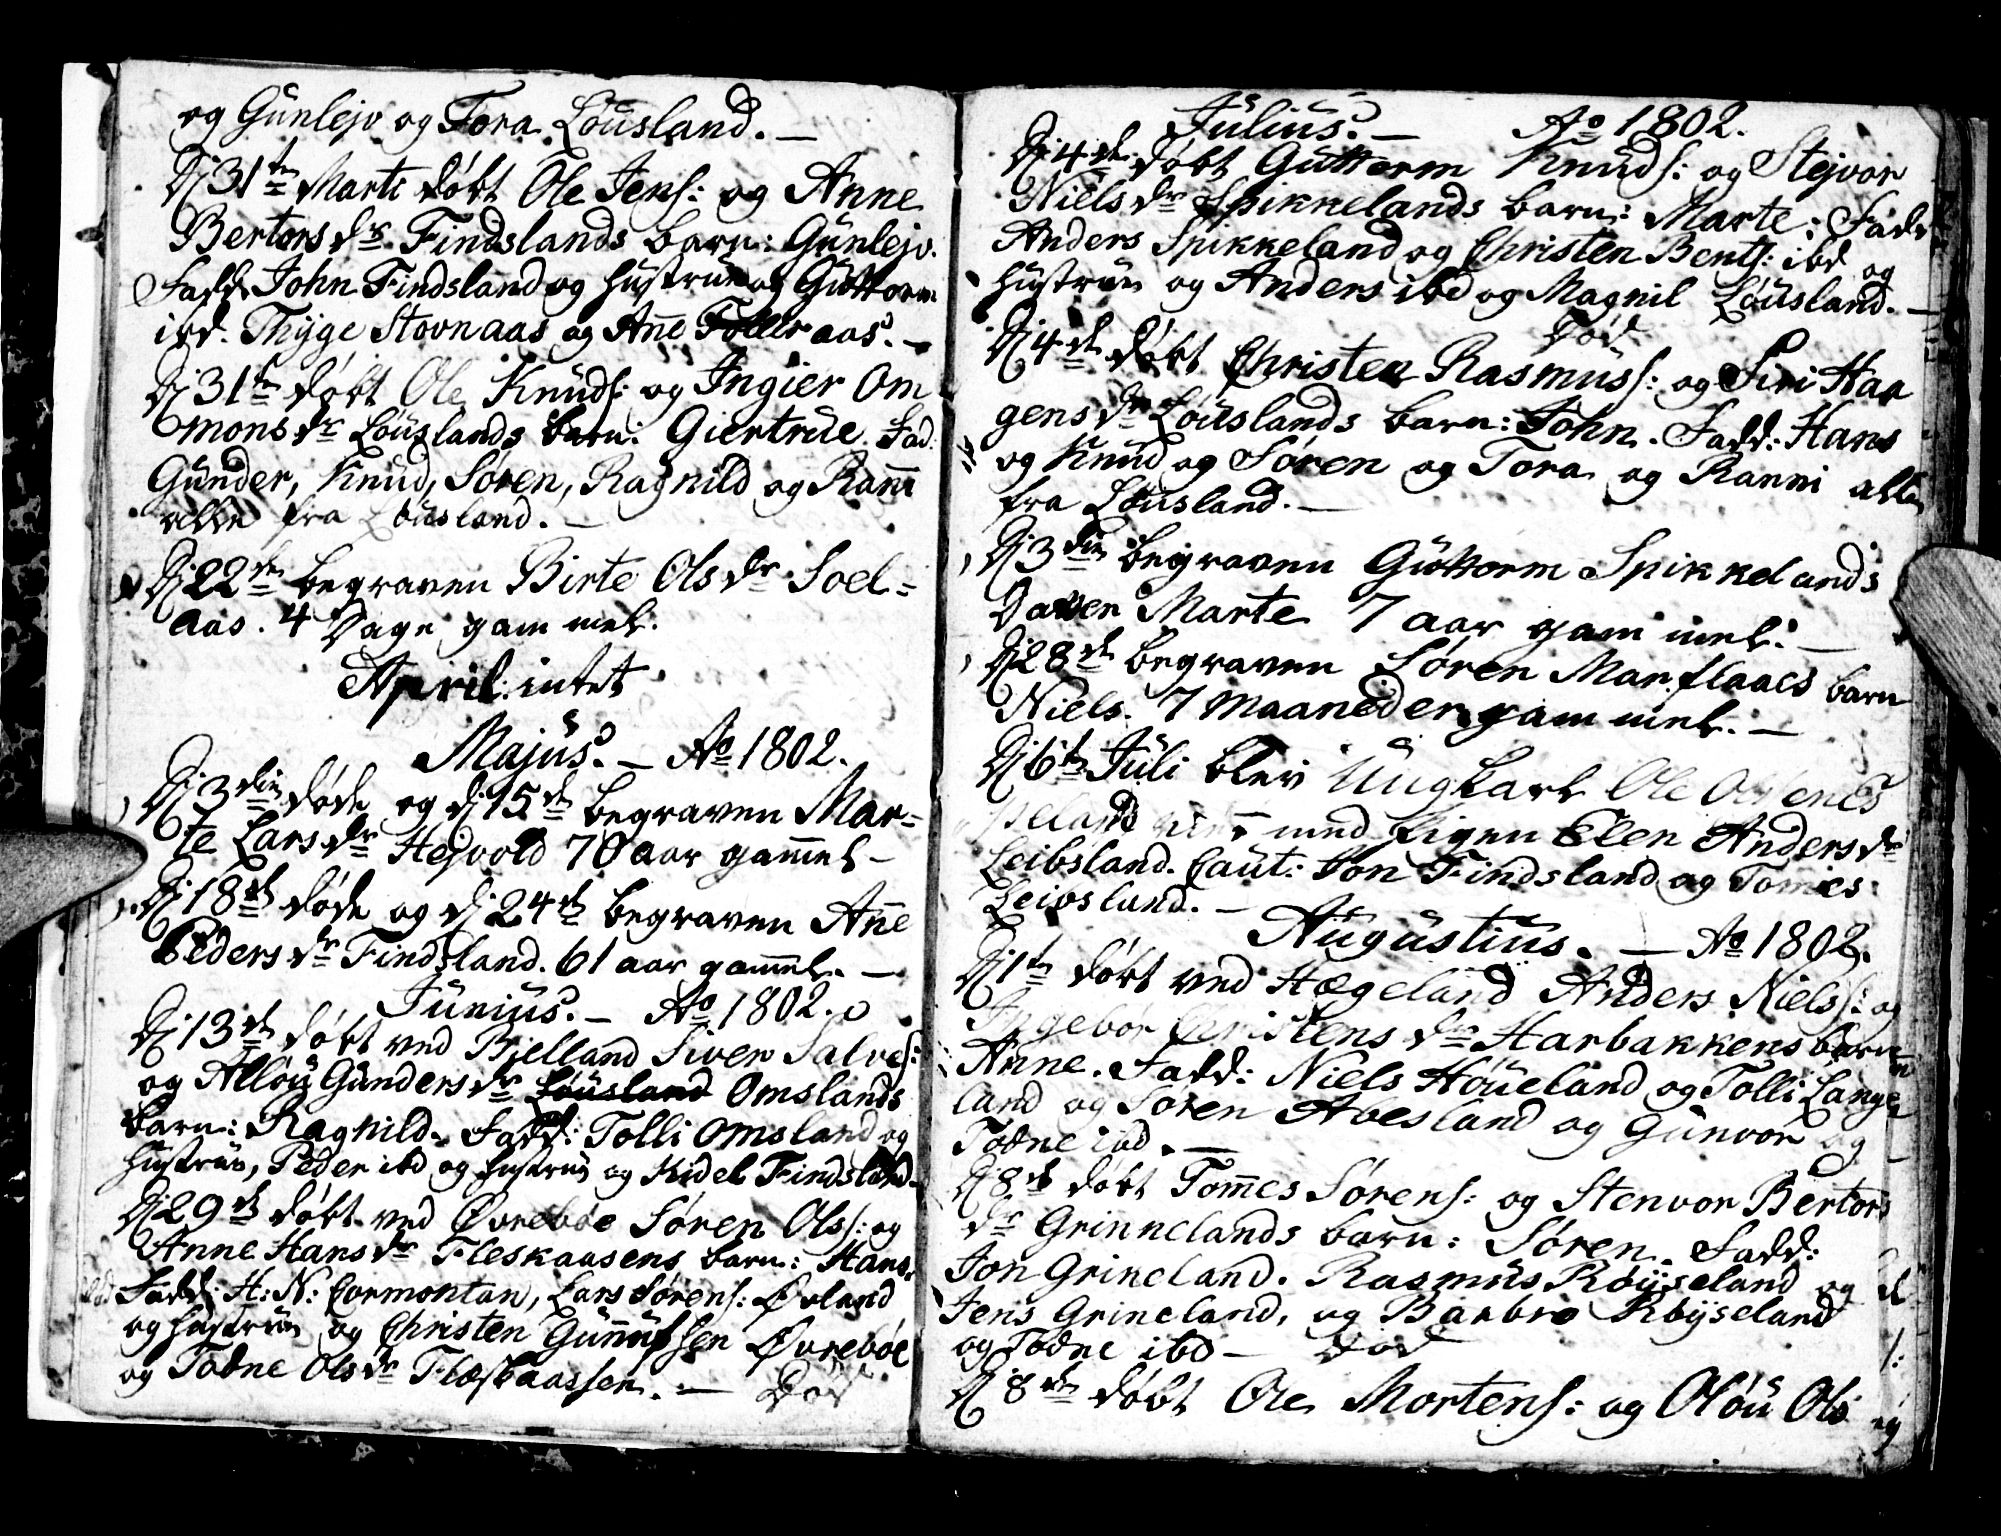 og Gunlejv og Tora Løusland. —
Dj 31te Marti døbt Ole Jens: og Anne
Bertorsdr Findslands barn: Gunlejv.
Fadd. John Findsland og hustrue og Guttorm
ibd. Thÿge Stovnaas og Ane Tolleraas. —
Dj 31te døbt Ole Knuds: og Ingier Om
monsdr Løuslands barn: Giertrue. Fad:
Gunder, Knud, Søren, Ragnild og Rañi
alle fra Løusland. —
Dj 22de begraven Birte Olsdr Soel=
aas. 4 Dage gammel.
April: intet
Majus. — Ao 1802.
Dj 3die døde og dj 15de begraven Mar=
te Larsdr Hejvold 70 aar gam̄el —
Dj 18de døde og dj 24de begraven Añe
Pedersdr Findsland. 61 aar gam̄el. —
Junius. — Ao 1802.
Dj 13de døbt ved Bjelland Siver Salves:
og Alløu Gundersdr Løusland Omslands
barn: Ragnild. Fadd: Tolli Omsland og
hustrue, Peder ibd og hustrue og Kidel Findsland.
Dj 29de døbt ved Øvrebøe Søren Ols: og
Anne Hansdr Fleskaasens barn: Hans.
Fadd: H: N: Cormontan, Lars Sørens: Øvland
og hustrue og Christen Gunnufsen Øvrebøe
og Todne Olsdr Flæskaassen. — Død
Julius. — Ao 1802.
Dj 4de døbt Guttorm Knuds: og Stejvor
Nielsdr Spikkelands barn: Marte: Fadd
Anders Spikkeland og Christen Bents: ibd og
hustrue og Anders ibd og Magnil Løusland. —
Død
Dj 4de døbt Christen Rasmus: og Siri Haa
gensdr Løuslands barn: John. Fadd: Hans
og Knud og Søren og Tora og Ranni alle
fra Løusland. —
Dj 3die begraven Guttorm Spikkelands
Datter Marte 7 aar gammel. —
Dj 28de begraven Søren Manflaaes barn
Niels. 7 Maaneder gammel. —
Dj 6te Juli blev Ungkarl Ole
med Pigen Elen Andersdr
Leibsland. Caut: Jon Findsland og Tomes
Leibsland. —
Augustius. — Ao 1802.
Dj 1te døbt ved Hægeland Anders Niels: og
Ingebor Christensdr Harbakkens barn
Anne. Fadd: Niels Høueland og Tolli Lange
land og Søren Avesland og Gunvor og
Todne ibd. —
Dj 8de døbt Tom̄es Sørens: og Stenvor Bertors
dr Grinnelands barn: Søren. Fadd:
Jon Grineland. Rasmus Røÿseland og
Jens Grineland, og Barbro Røÿseland
og Todne ibd — Død
Dj 8de døbt Ole Mortens: og Oløu Ols